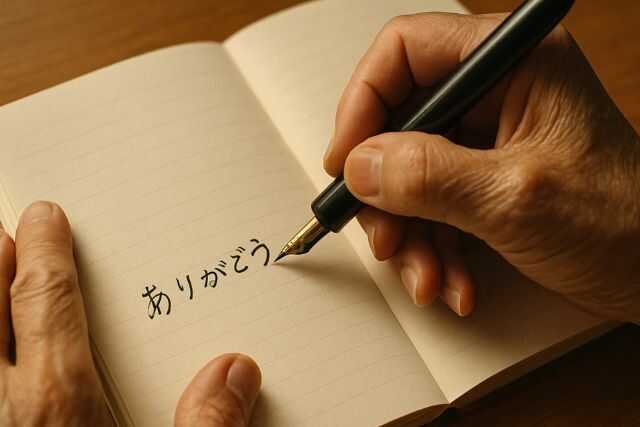 ありがごう